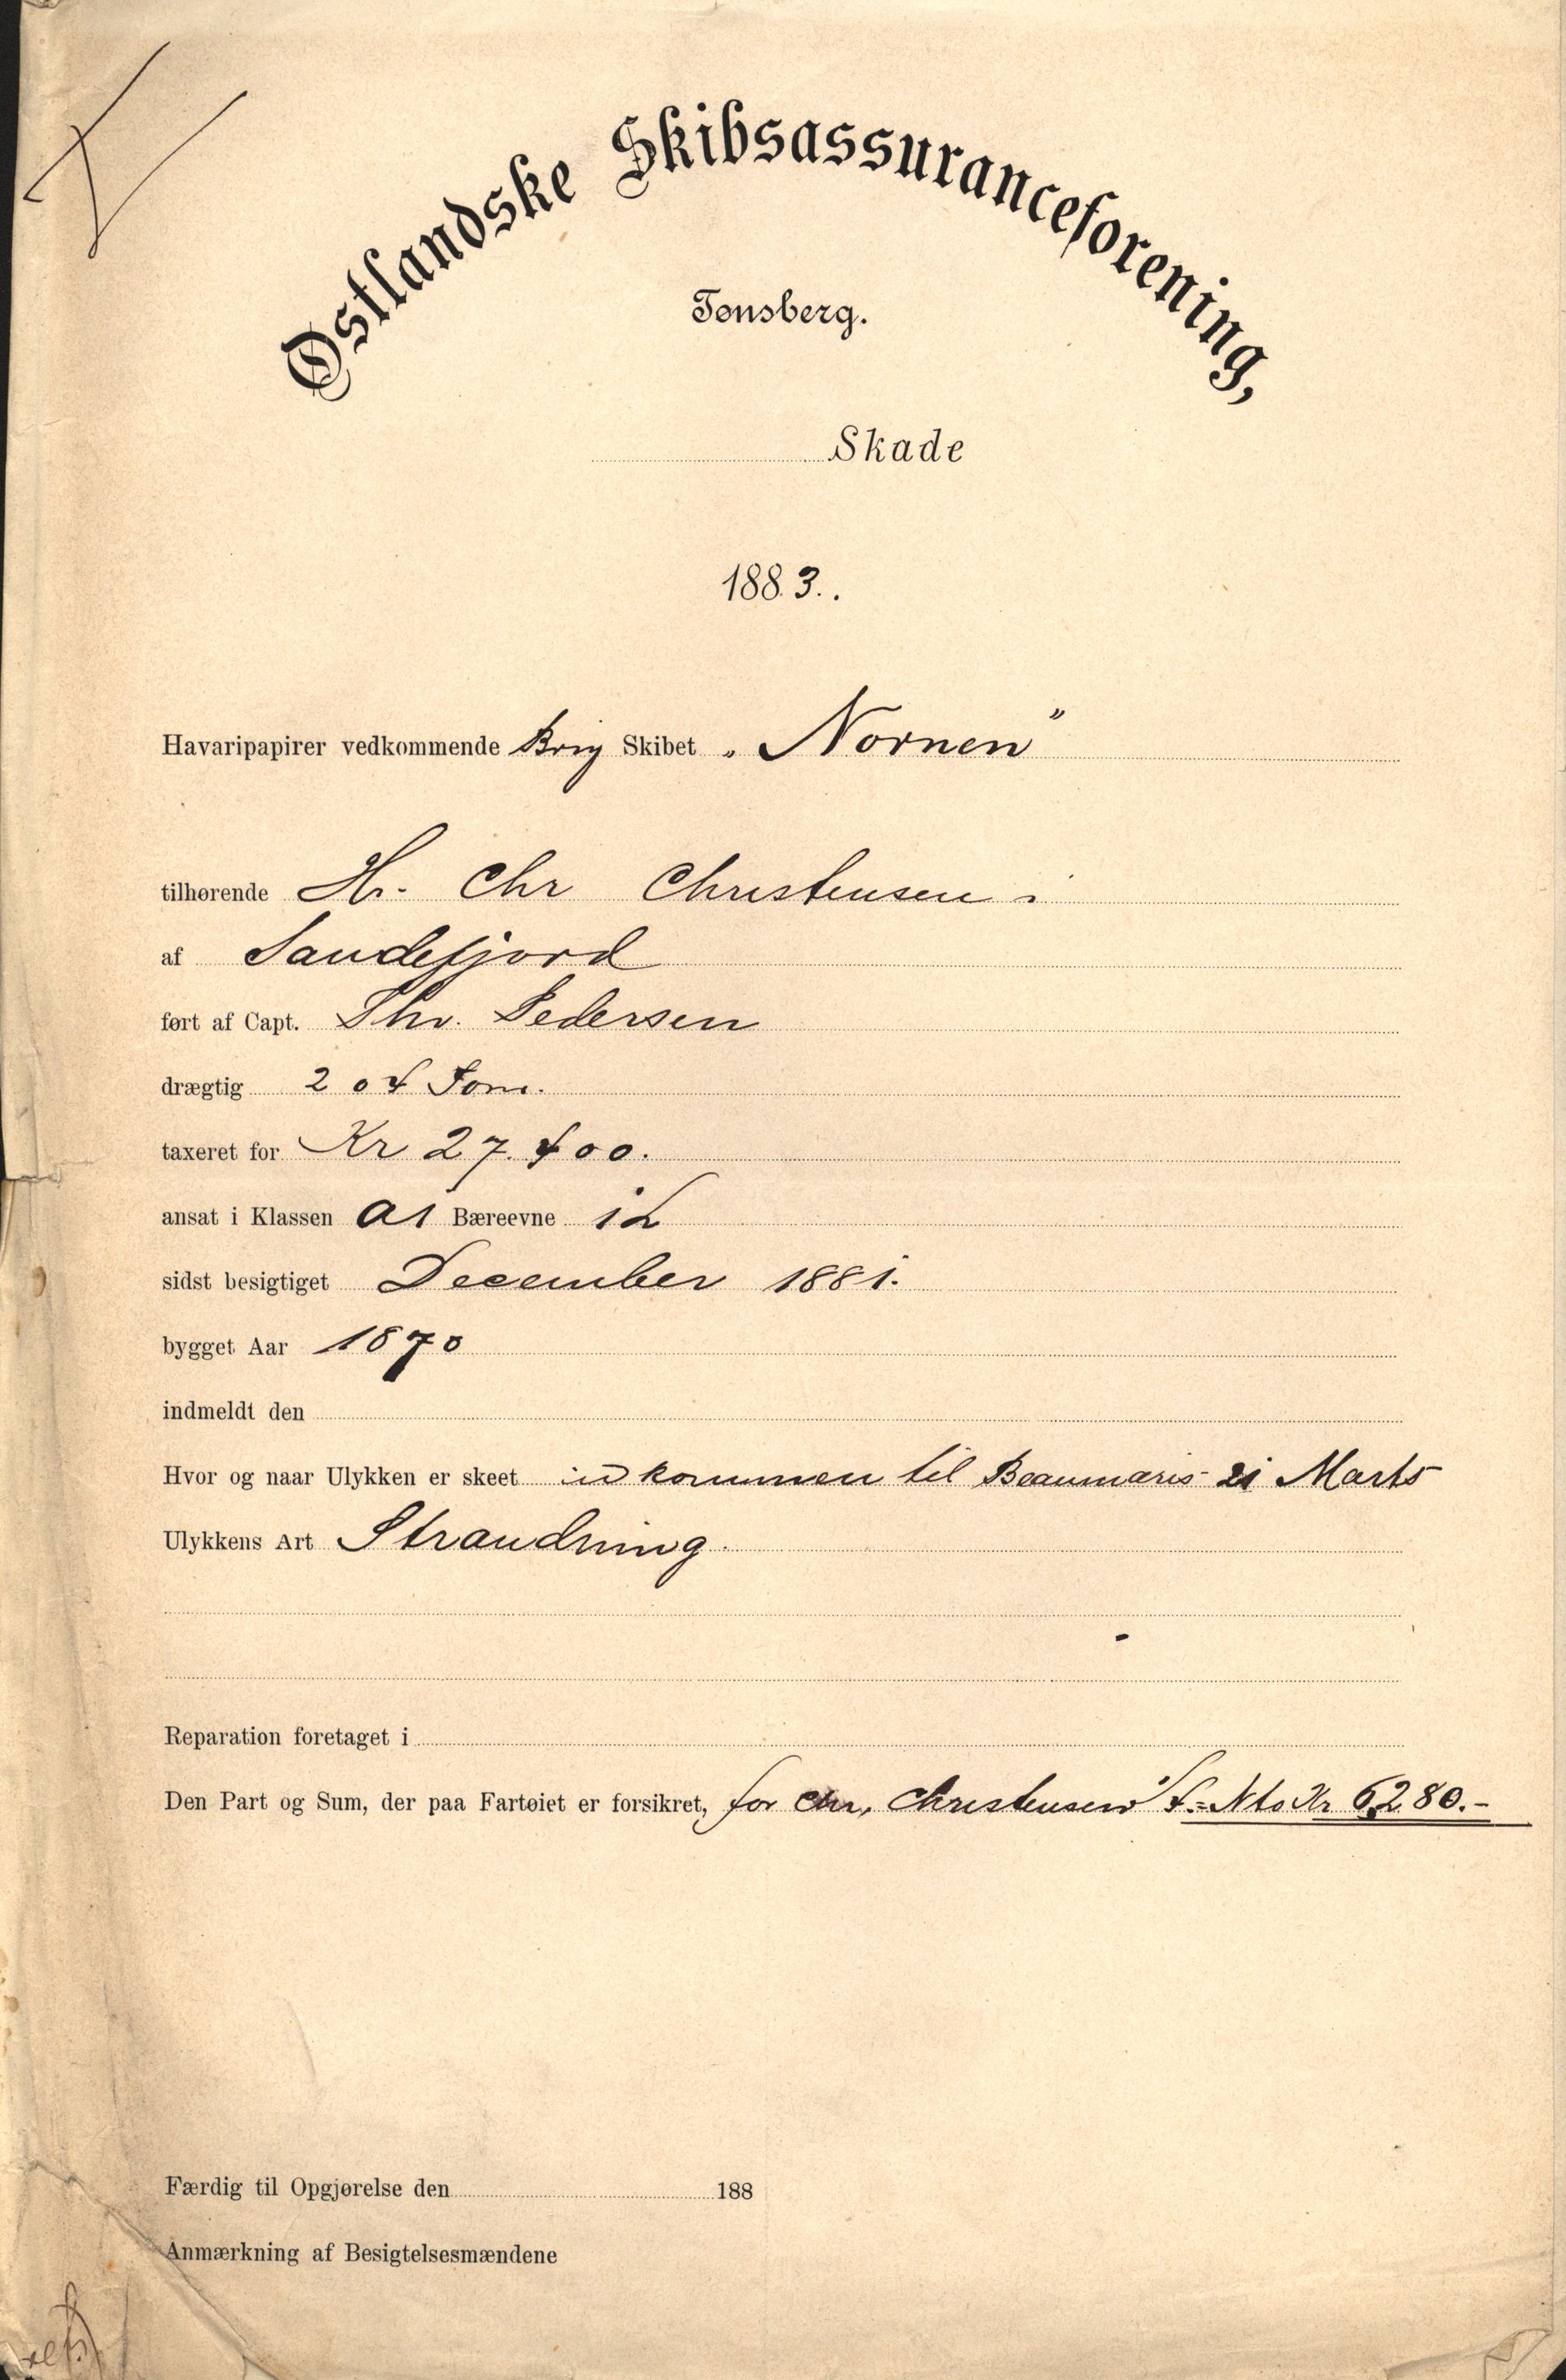 Østlandske Skibsassuranceforening,
Tønsberg.
Skade
1883.
Havaripapirer vedkommende Brig Skibet „Nornen”
tilhørende Hr. Chr Christensen i
af Sandefjord
ført af Capt. Thv. Pedersen
drægtig 204 Tons.
taxeret for Kr 27.400.
ansat i Klassen A1 Bæreevne
sidst besigtiget December 1881.
bygget Aar 1870
indmeldt den
Hvor og naar Ulykken er skeet indkommen til Beaumaris 21 Marts
Ulykkens Art Strandning.
Reparation foretaget i
Den Part og Sum, der paa Fartøiet er forsikret, for Chr, Christensen Nto Kr 6280.-
Færdig til Opgjørelse den 188
Anmærkning af Besigtelsesmændene